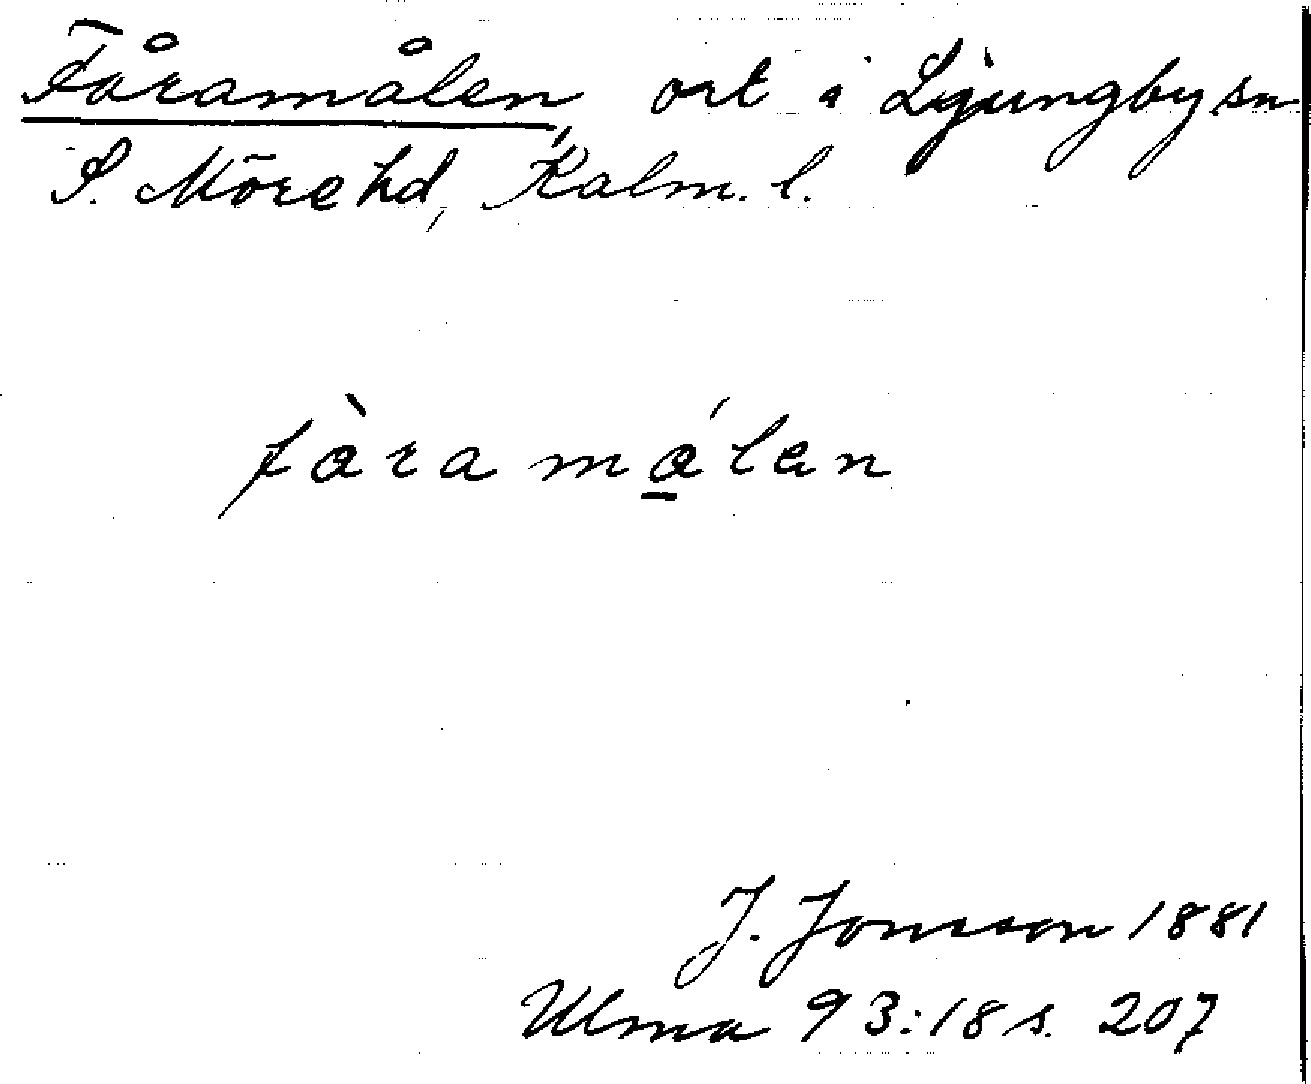 Fåramålen, ort i Ljungby sn
S. Möre hd, Kalm. l.
fàramálen
J. Jonsson 1881
Ulma 93:18 s. 207